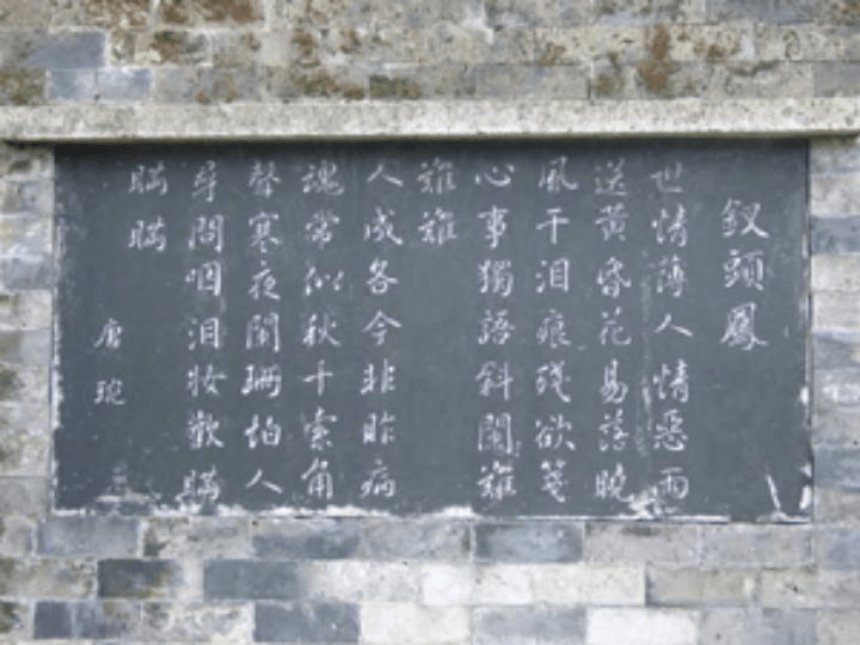 釵頭鳳
世情薄人情惡雨
送黄昏花易落曉
風干泪痕殘欲箋
心事獨語斜闌難
難難
人成各今非昨病
魂常似秋千索角
聲寒夜闌珊怕人
尋問咽泪妝歡瞞
瞞瞞
唐琬